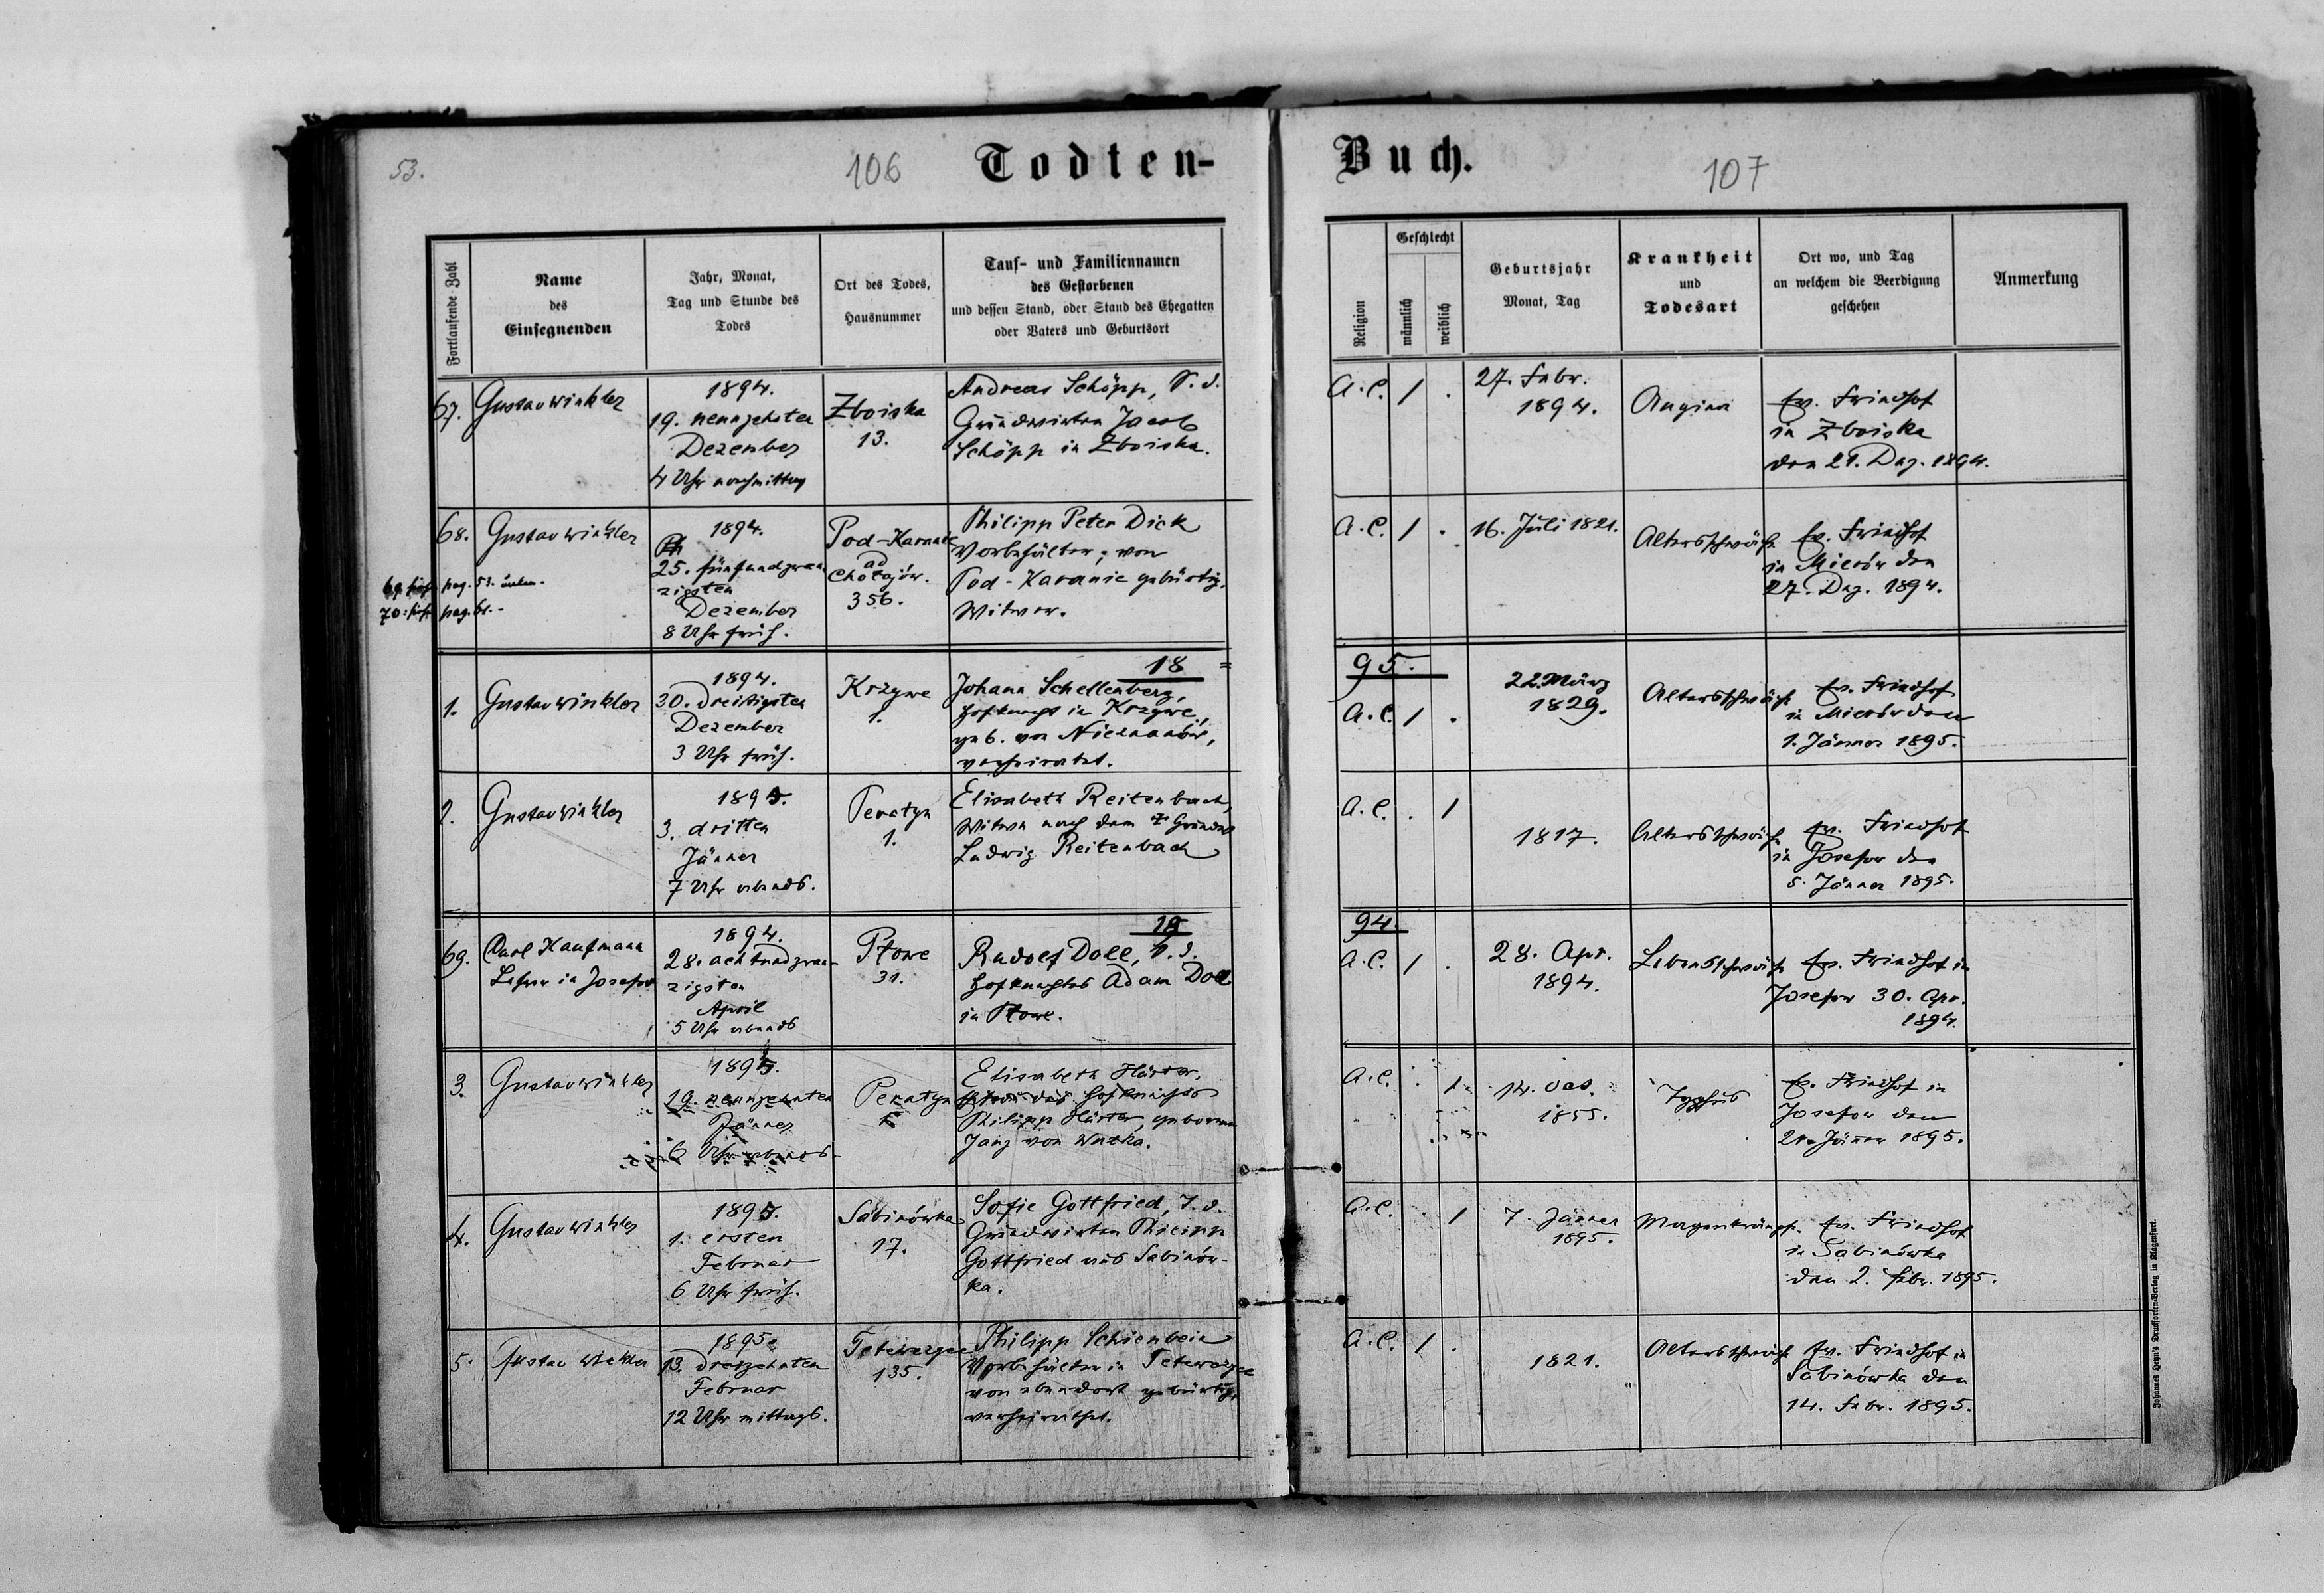 53.
106
Todten-
Fortlaufende Zahl
Name
des
Einsegnenden
Jahr, Monat,
Tag und Stunde des
Todes
Ort des Todes,
Hausnummer
Tauf- und Familiennamen
des Gestorbenen
und dessen Stand, oder Stand des Ehegatten
oder Vaters und Geburtsort
67.
Gustav Winkler
1894.
19. neunzehnten
Dezember
4 Uhr nachmittag
Zboiska
13.
Andreas Schöpp, S. d.
Grundwirten Jacob
Schöpp in Zboiska.
68.
Gustav Winkler
1894.
25. fünfundzwan
zigsten
Dezember
8 Uhr früh.
Pod-Karanie
ad
Chołojów.
356.
Philipp Peter Dick
Vorbehälter; von
Pod-Karanie gebürtig,
Witwer.
69. siehe pag. 53. unten.
70. siehe pag. 61.
1.
Gustav Winkler
1894.
30. dreißigsten
Dezember
3 Uhr früh.
Krzywe
1.
18
Johann Schellenberg,
Hofknecht in Krzywe,
geb. von
verheiratet.
2.
Gustav Winkler
1895.
3. dritten
Jänner
7 Uhr abends.
Peratyn
1.
Elisabeth Reitenbach,
Witwe nach dem
Ludwig Reitenbach
69.
Carl Kaufmann
Lehrer in Josefow
1894.
28. achtundzwan-
zigsten
April
5 Uhr abends
Płowe
31.
18
Rudolf Doll, S. d.
Hofknechtes Adam Doll
in Płowe.
3.
Gustav Winkler
1895.
19. neunzehnten
Jänner
6 Uhr abends.
Peratyn
Elisabeth Härter,
des Hofknechtes
Philipp Härter, geborene
Jang von
4.
Gustav Winkler
1895.
1. ersten
Februar
6 Uhr früh.
Sabinówka
17.
Sofie Gottfried, T. d.
Grundwirten Philipp
Gottfried aus Sabinów-
ka.
5.
Gustav Winkler
1895.
13. dreizehnten
Februar
12 Uhr mittags.
Tetewczyce
135.
Philipp Schienbein
Vorbehälter in Tetewczyce
von ebendort gebürtig,
verheirathet.
Buch.
107
Religion
Geschlecht
männlich
weiblich
Geburtsjahr
Monat, Tag
Krankheit
und
Todesart
Ort wo, und Tag
an welchem die Beerdigung
geschehen
Anmerkung
A.C. 1 .
27. Febr.
1894.
Angina
Ev. Friedhof
in Zboiska
den 21. Dez. 1894.
A.C. 1 .
16. Juli 1821.
Altersschwäche
Ev. Friedhof
in Mierów den
27. Dez. 1894.
95.
A.C. 1 .
22. März
1829.
Altersschwäche
Ev. Friedhof
in Mierów den
1. Jänner 1895.
A.C. . 1
1817.
Altersschwäche
Ev. Friedhof
in Josefow den
5. Jänner 1895.
94.
A.C. 1 .
28. Apr.
1894.
Lebensschwäche
Ev. Friedhof in
Josefow 30. Apr.
1894.
A.C. . 1
14.
1855.
Typhus
Ev. Friedhof in
Josefow den
21. Jänner 1895.
A.C. . 1
7. Jänner
1895.
Magenkrämpfe
Ev. Friedhof
in Sabinówka
den 2. Febr. 1895.
A.C. 1 .
1821.
Altersschwäche
Ev. Friedhof in
Sabinówka den
14. Febr. 1895.
Johannes Heyn's Drucksorten-Verlag in Klagenfurt.